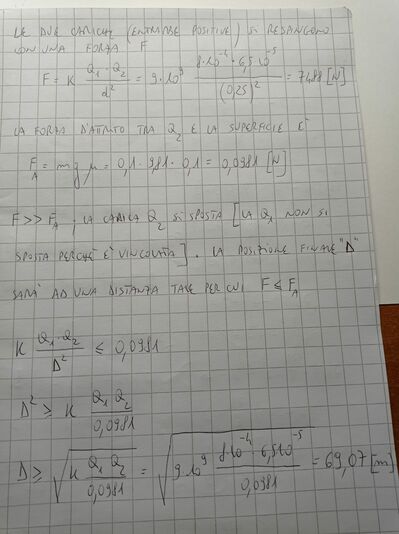 LE DUE CARICHE (ENTRAMBE POSITIVE) SI RESPINGONO
CON UNA FORZA F
F = K Q₁ · Q₂ / d² = 9 · 10⁹ 8 · 10⁻⁴ · 6,5 · 10⁻⁵ / (0,25)² = 7488 [N]
LA FORZA D'ATTRITO TRA Q₂ E LA SUPERFICIE E'
F_A = m g μ = 0,1 · 9,81 · 0,1 = 0,0981 [N]
F >> F_A ; LA CARICA Q₂ SI SPOSTA [LA Q₁ NON SI
SPOSTA PERCHE' E' VINCOLATA]. LA POSIZIONE FINALE "D"
SARA' AD UNA DISTANZA TALE PER CUI F ≤ F_A
K Q₁ · Q₂ / D² ≤ 0,0981
D² ≥ K Q₁ Q₂ / 0,0981
D ≥ √(K Q₁ Q₂ / 0,0981) = √(9 · 10⁹ 8 · 10⁻⁴ · 6,5 · 10⁻⁵ / 0,0981) = 69,07 [m]